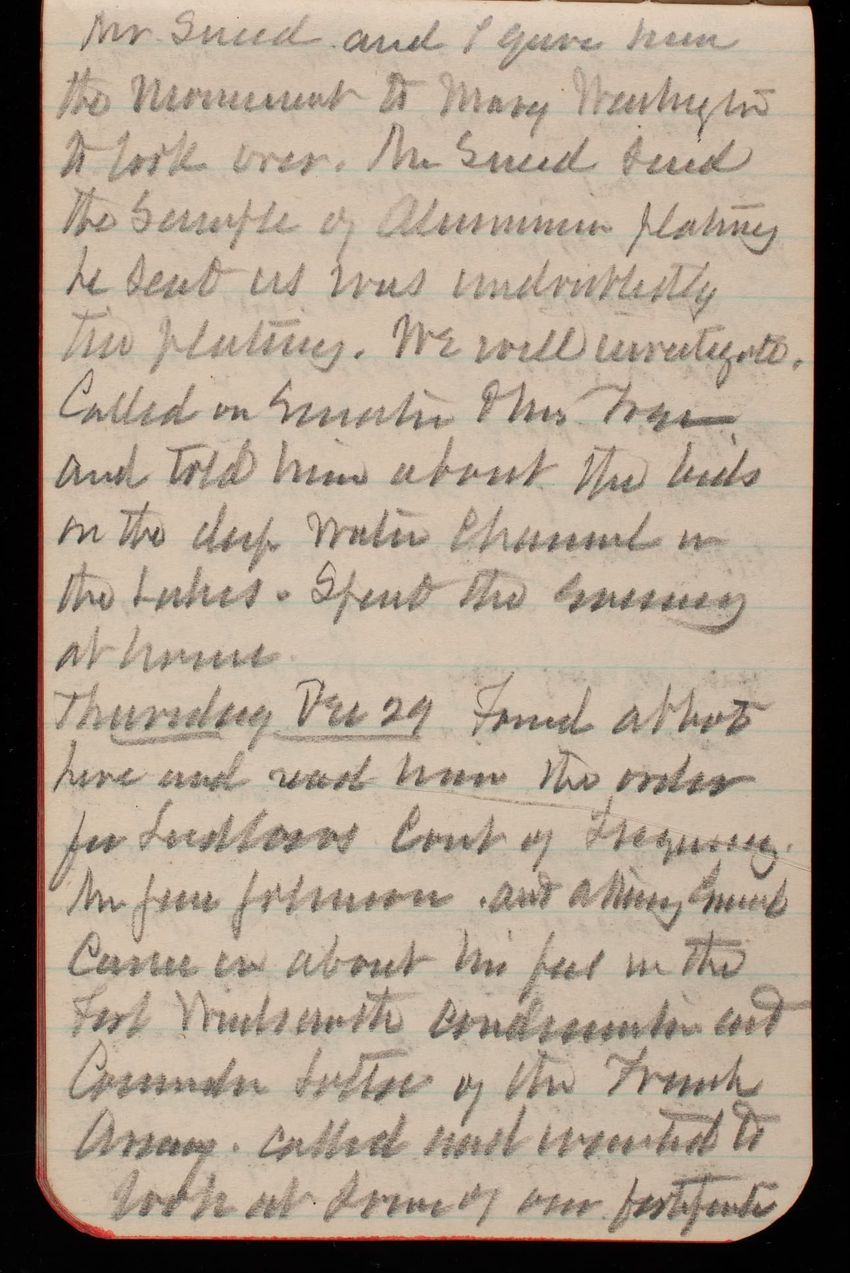 Mr Sneed and I gave him
the Monument to Mary Washington
to look over. Mr Sneed said
the Sample of Aluminum plating
he sent us was undoubtedly
tin plating. We will investigate.
Called on Senator
and told him about the bids
on the deep Water Channel in
the Lakes. Spent the Evening
at home
Thursday Dec 29 Found Abbot
here and read him the order
for Ludlows Court of Inquiry.
and attorney
Came in about his fees in the
Fort Wadsworth condemnation and
of the French
Army. called and wanted to
look at some of our fortificatio